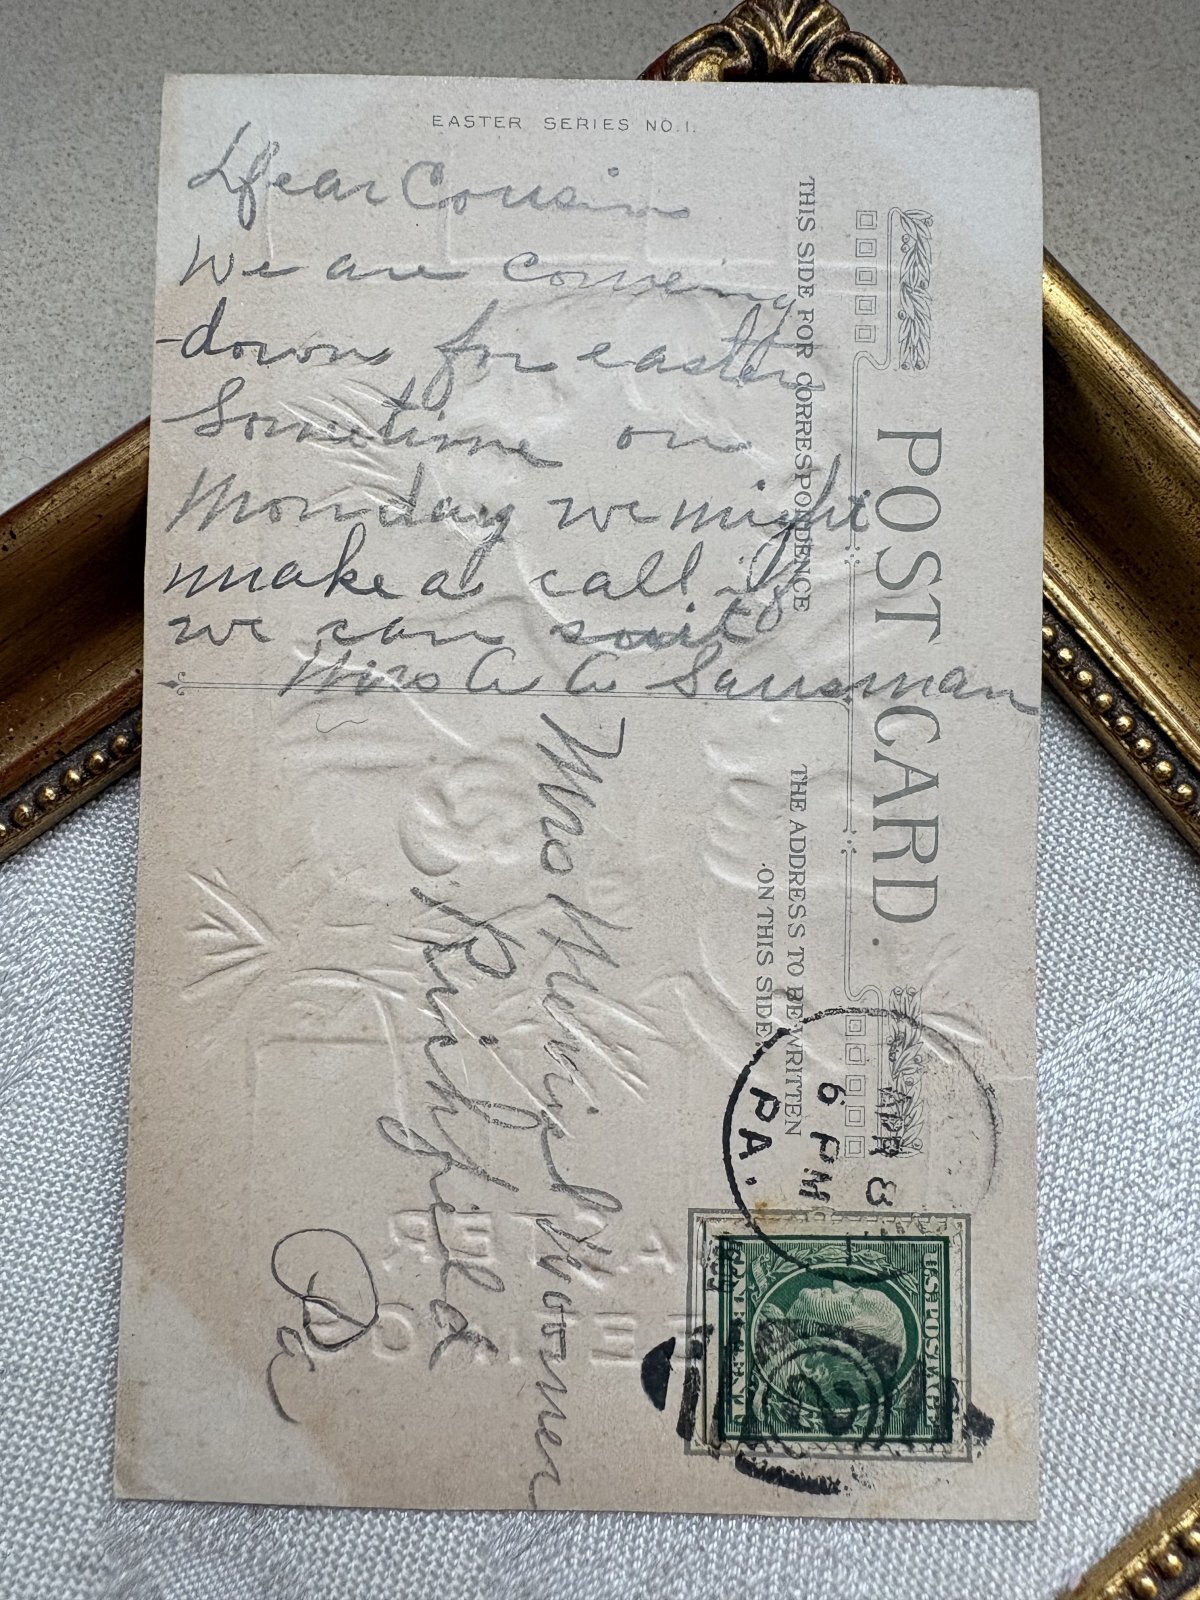 EASTER SERIES NO. 1.
Dear Cousin
We are comeing
down for easter
Sometime on
Monday we might
make a call if
we can suit
Mrs A A Sausman
THIS SIDE FOR CORRESPONDENCE
POST CARD.
THE ADDRESS TO BE WRITTEN
ON THIS SIDE
APR 8
6 PM
PA.
U.S. POSTAGE
Mrs
Richfield
Pa